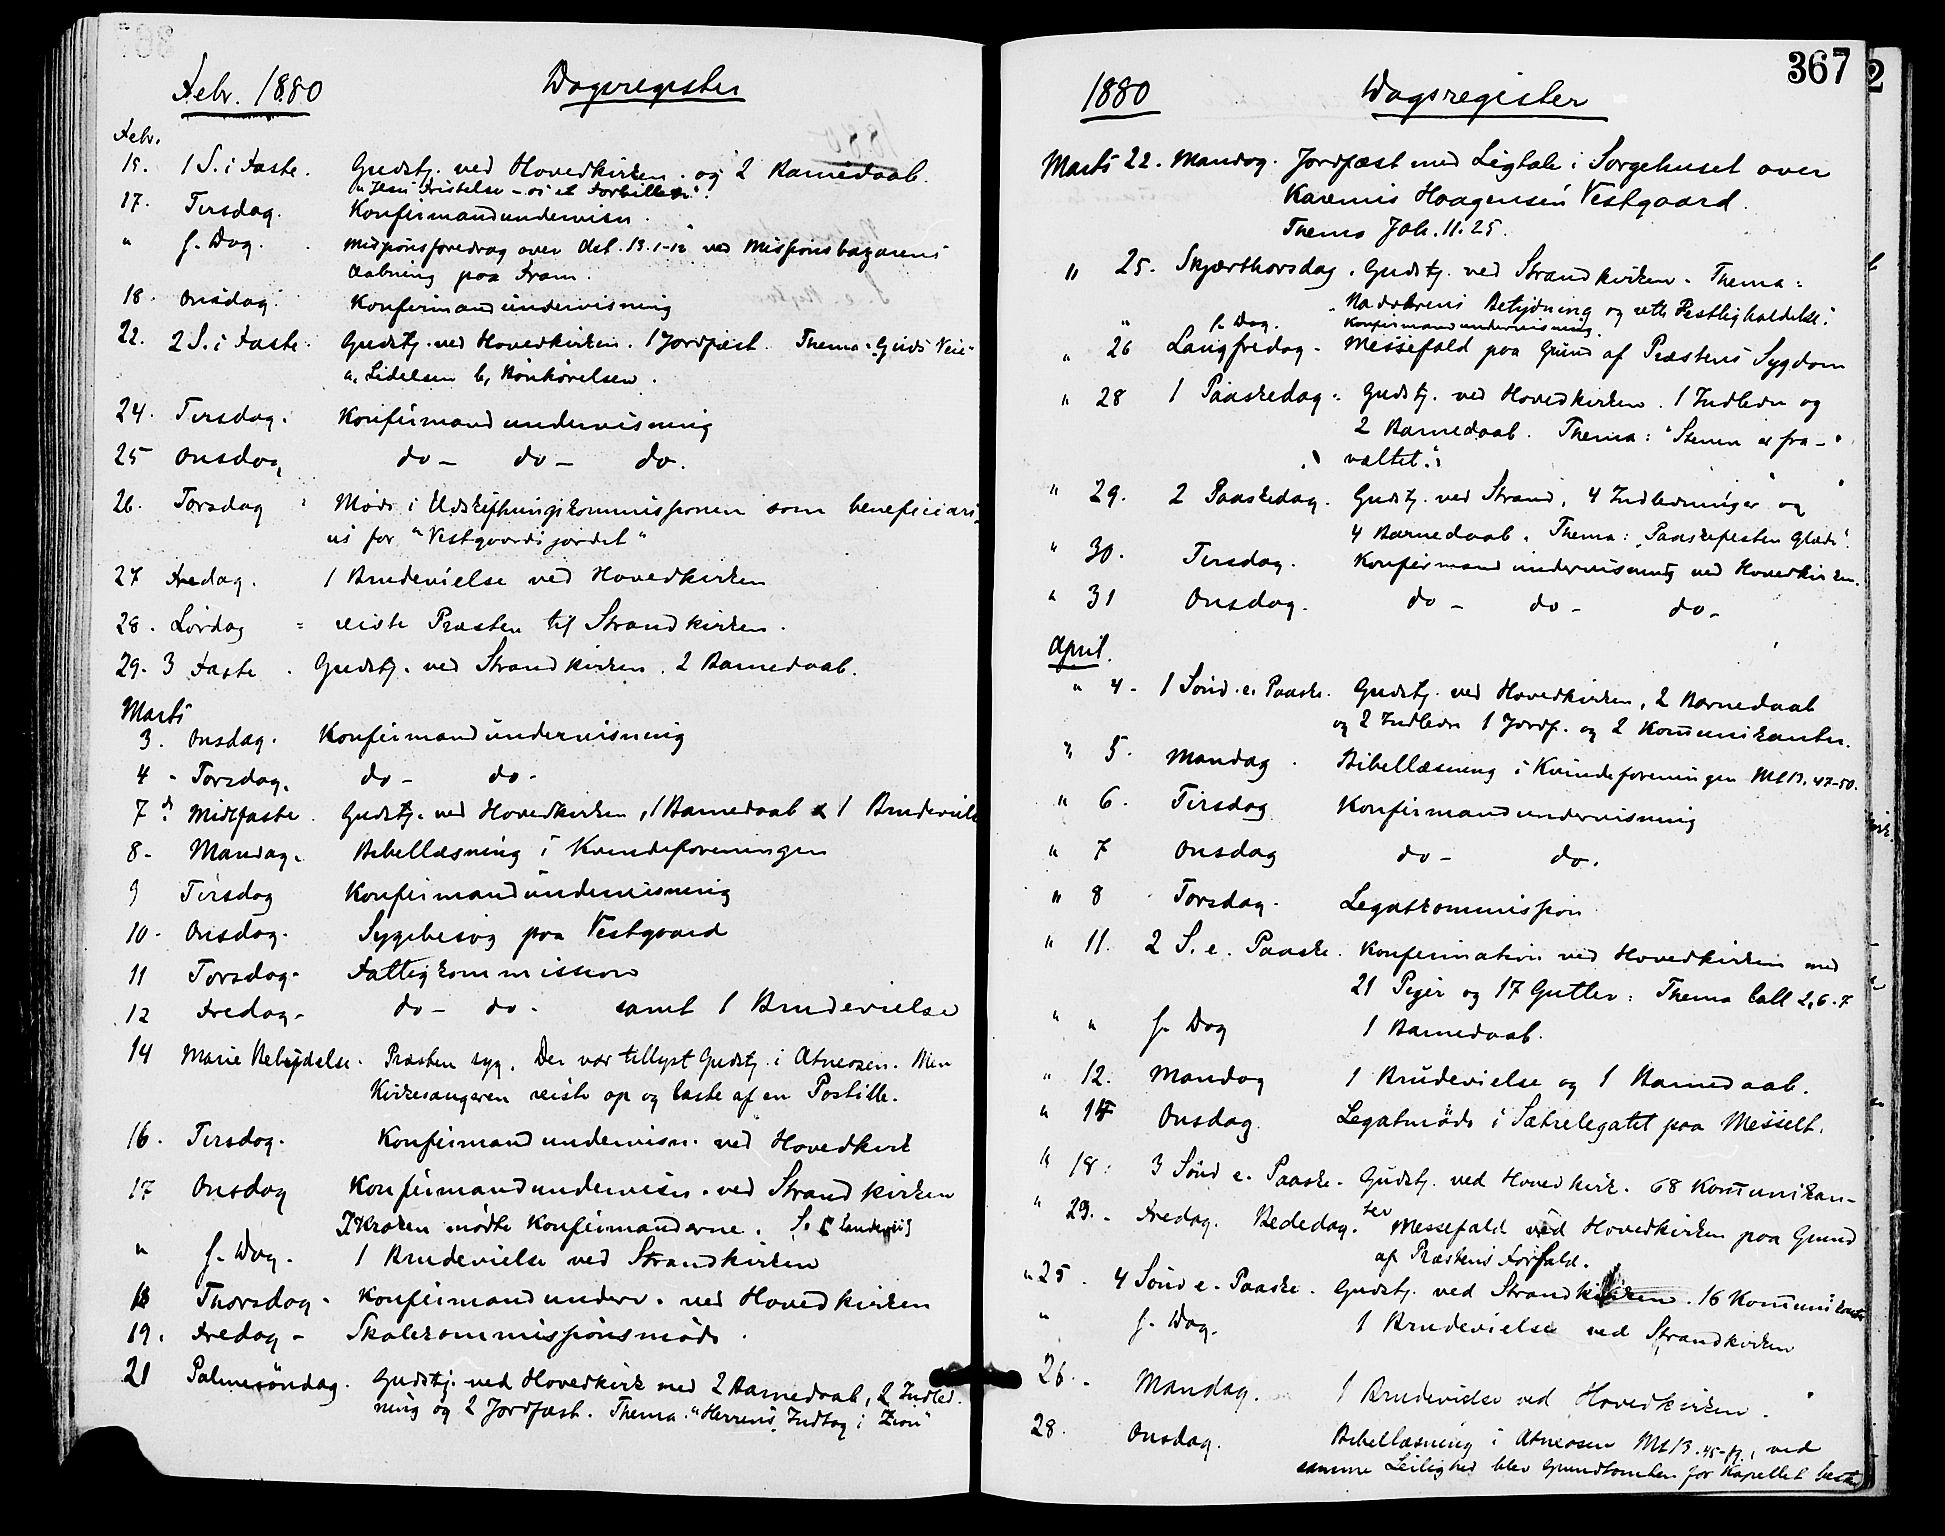 Febr. 1880 Dagsregister
Febr.
15. 1 S. i Faste. Gudstj. ved Hovedkirken. og 2 Barnedaab.
"Jesu Fristelse - os et Forbillede".
17. Tirsdag. Konfirmandundervisn.
" s. Dag. Missionsforedrag over Act. 13.1-12 ved Missionsbazarens
Aabning paa Fram.
18. Onsdag. Konfirmandundervisning
22. 2 S. i Faste. Gudstj. ved Hovedkirken. 1 Jordfæst. Thema: Guds Veie
a, Lidelsen b, Bønhørelsen.
24. Tirsdag. Konfirmandundervisning
25 Onsdag do - do - do.
26. Torsdag Møde i Udskiftningskommissionen som beneficiari-
us for "Vestgaardsjordet"
27 Fredag. 1 Brudevielse ved Hovedkirken
28. Lørdag = reiste Præsten til Strandkirken.
29. 3 Faste. Gudstj. ved Strandkirken. 2 Barnedaab.
Marts
3. Onsdag. Konfirmandundervisning
4 - Torsdag. do - do -
7. Midtfaste. Gudstj. ved Hovedkirken, 1 Barnedaab & 1 Brudeviels
8 - Mandag. Bibellæsning i Kvindeforeningen
9 Tirsdag Konfirmandundervisning
10 - Onsdag. Sygebesøg paa Vestgaard
11 Torsdag. Fattigkommission
12 Fredag - do - do - samt 1 Brudevielse
14 Marie Bebudelse. Præsten syg. Der var tillyst Gudstj. i Atneosen. Men
Kirkesangeren reiste op og læste af en Postille.
16. Tirsdag. Konfirmandundervisn. ved Hovedkirk
17 Onsdag Konfirmandundervisn. ved Strandkirken
Ikraken mødte Konfirmanderne.
" s. Dag. 1 Brudevielse ved Strandkirken
18 Thorsdag - Konfirmandunderv. ved Hovedkirken
19. Fredag - Skolekommissionsmøde.
21 Palmesøndag. Gudstj. ved Hovedkirk med 2 Barnedaab, 2 Indled-
ning og 2 Jordfæst. Thema: "Herrens Indtog i Zion"
367
1880 Dagsregister
Marts 22. Mandag. Jordfæst med Ligtale i Sorgehuset over
Karenus Haagensen Vestgaard.
Thema Joh. 11.25.
" 25. Skjærthorsdag. Gudstj. ved Strandkirken. Thema:
"Nadverens Betydning og rette Festligholdelse".
" s. Dag. Konfirmandundervisning.
" 26 Langfredag. Messefald paa Grund af Præstens Sygdom
" 28 1 Paaskedag. Gudstj. ved Hovedkirken. 1 Indledn og
2 Barnedaab. Thema: "Stenen er fra-
væltet".
" 29. 2 Paaskedag. Gudstj. ved Strand, 4 Indledninger og
4 Barnedaab. Thema: "Paaskefestens Glæde".
" 30. Tirsdag. Konfirmandundervisning ved Hovedkirken.
" 31 Onsdag. do - do - do -
April.
" 4 - 1 Sønd. e. Paaske. Gudstj. ved Hovedkirken, 2 Barnedaab
og 2 Indledn 1 Jordf. og 2 Kom̄unikanter.
" 5. Mandag. Bibellæsning i Kvindeforeningen Mt 13. 47-50.
" 6. Tirsdag Konfirmandundervisning
" 7 Onsdag do - do.
" 8 Torsdag. Legatkommission
" 11. 2 S. e. Paaske. Konfirmation ved Hovedkirken med
21 Piger og 17 Gutter: Thema Coll 2, 6-7
" " s. Dag 1 Barnedaab.
" 12. Mandag 1 Brudevielse og 1 Barnedaab.
" 14 Onsdag. Legatmøde i Sætrelegatet paa Messelt.
" 18. 3 Sønd e. Paaske. Gudstj. ved Hovedkirk. 68 Kom̄unikan-
ter
" 23. Fredag. Bededag. Messefald ved Hovedkirken paa Grund
af Præstens Forfald.
" 25. 4 Sønd e. Paaske. Gudstj. ved Strandkirken. 16 Kom̄unikanter
" s. Dag. 1 Brudevielse ved Strandkirken
26. Mandag. 1 Brudevielse ved Hovedkirken.
28. Onsdag. Bibellæsning i Atneosen Mt 13. ved
samme Leilighed blev Grundtomten for Kapellet